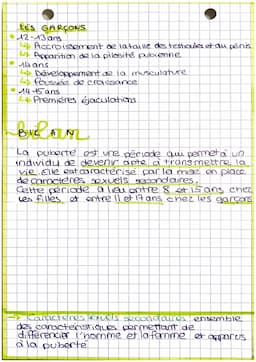 LES GARÇONS
• 12-13 ans
↳ Accroissement de la taille des testicules et du pénis
↳ Apparition de la pilosité pubienne
• 14 ans
↳ Développement de la musculature
↳ Poussée de croissance
• 14-15 ans
↳ Premières éjaculations
BILAN
La puberté est une période qui permet à un
individu de devenir apte à transmettre la
vie. Elle est caractérisé par la mise en place
de caractères sexuels secondaires.
Cette période a lieu entre 8 et 15 ans chez
les filles et entre 11 et 17 ans chez les garçons
→ Caractères sexuels secondaires ensemble
des caractéristiques permettant de
différencier l'homme et la femme et apparus
à la puberté